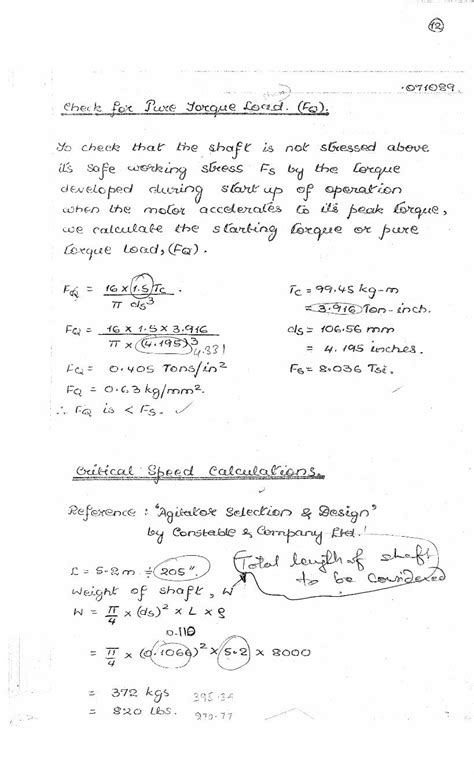 12
071089
Check for Pure Torque Load. (FQ).
To check that the shaft is not stressed above
its safe working stress Fs by the torque
developed during start up of operation
when the motor accelerates to its peak torque,
we calculate the starting torque or pure
torque Load, (FQ).
FQ = 16 x 1.5 Tc / π ds³
Tc = 99.45 kg-m
= 3.916 Ton-inch.
FQ = 16 x 1.5 x 3.916 / π x (4.195)³
4.331
ds = 106.56 mm
= 4.195 inches.
FQ = 0.405 Tons/in²
Fs = 8.036 Tsi.
FQ = 0.63 kg/mm².
∴ FQ is < Fs. ✓
Critical Speed Calculations.
Reference : "Agitator Selection & Design"
by Constable & Company Ltd.
L = 5.2m ÷ 205".
Total length of shaft
to be considered
Weight of shaft, W
W = π/4 x (ds)² x L x ρ
0.110
= π/4 x (0.1066)² x 5.2 x 8000
= 372 kgs
395.34
= 820 lbs.